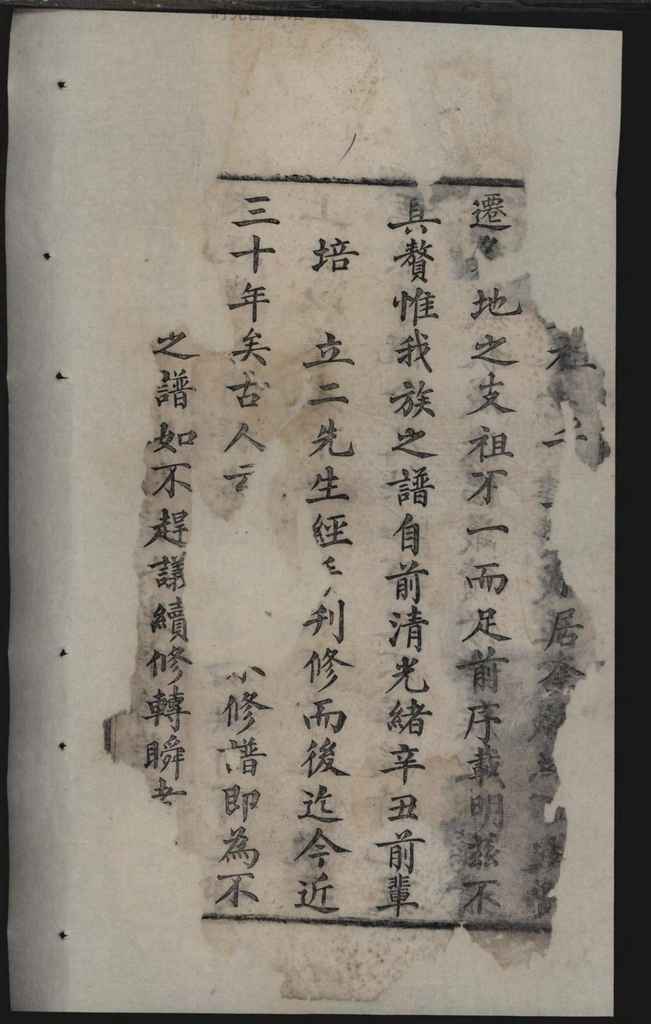 祖
居
遷 地之支祖不一而足前序載明茲不
具贅惟我族之譜自前清光緒辛丑前輩
培 立二先生經 刊修而後迄今近
三十年矣古人云 不修譜即為不
之譜如不趕議續修轉瞬